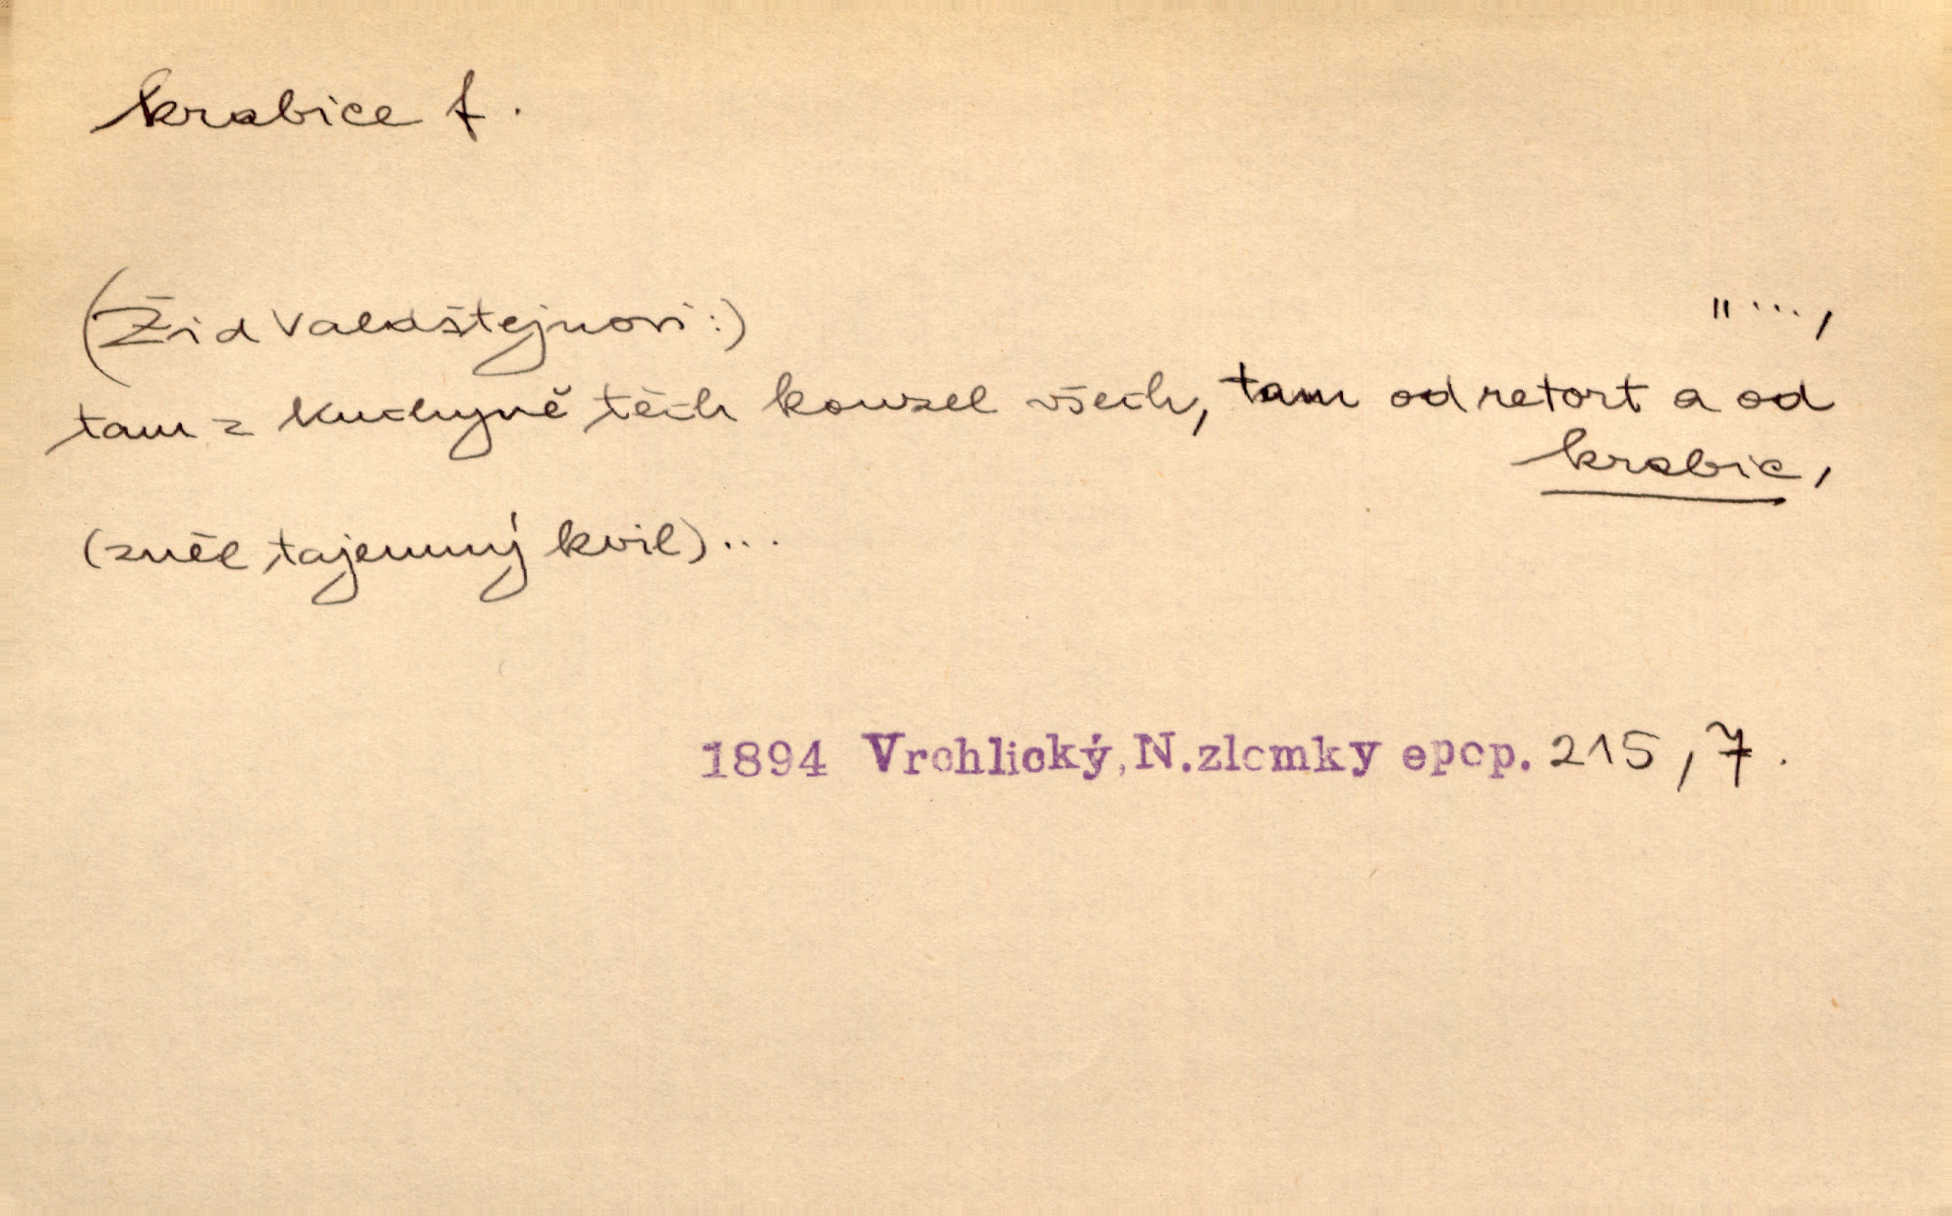 krabice f.
(Žid Valdštejnovi:) "...,
tam z kuchyně těch kouzel všech, tam od retort a od
krabic,
(zněl tajemný kvil)...
1894 Vrchlický, N.zlomky epop. 215, 7.